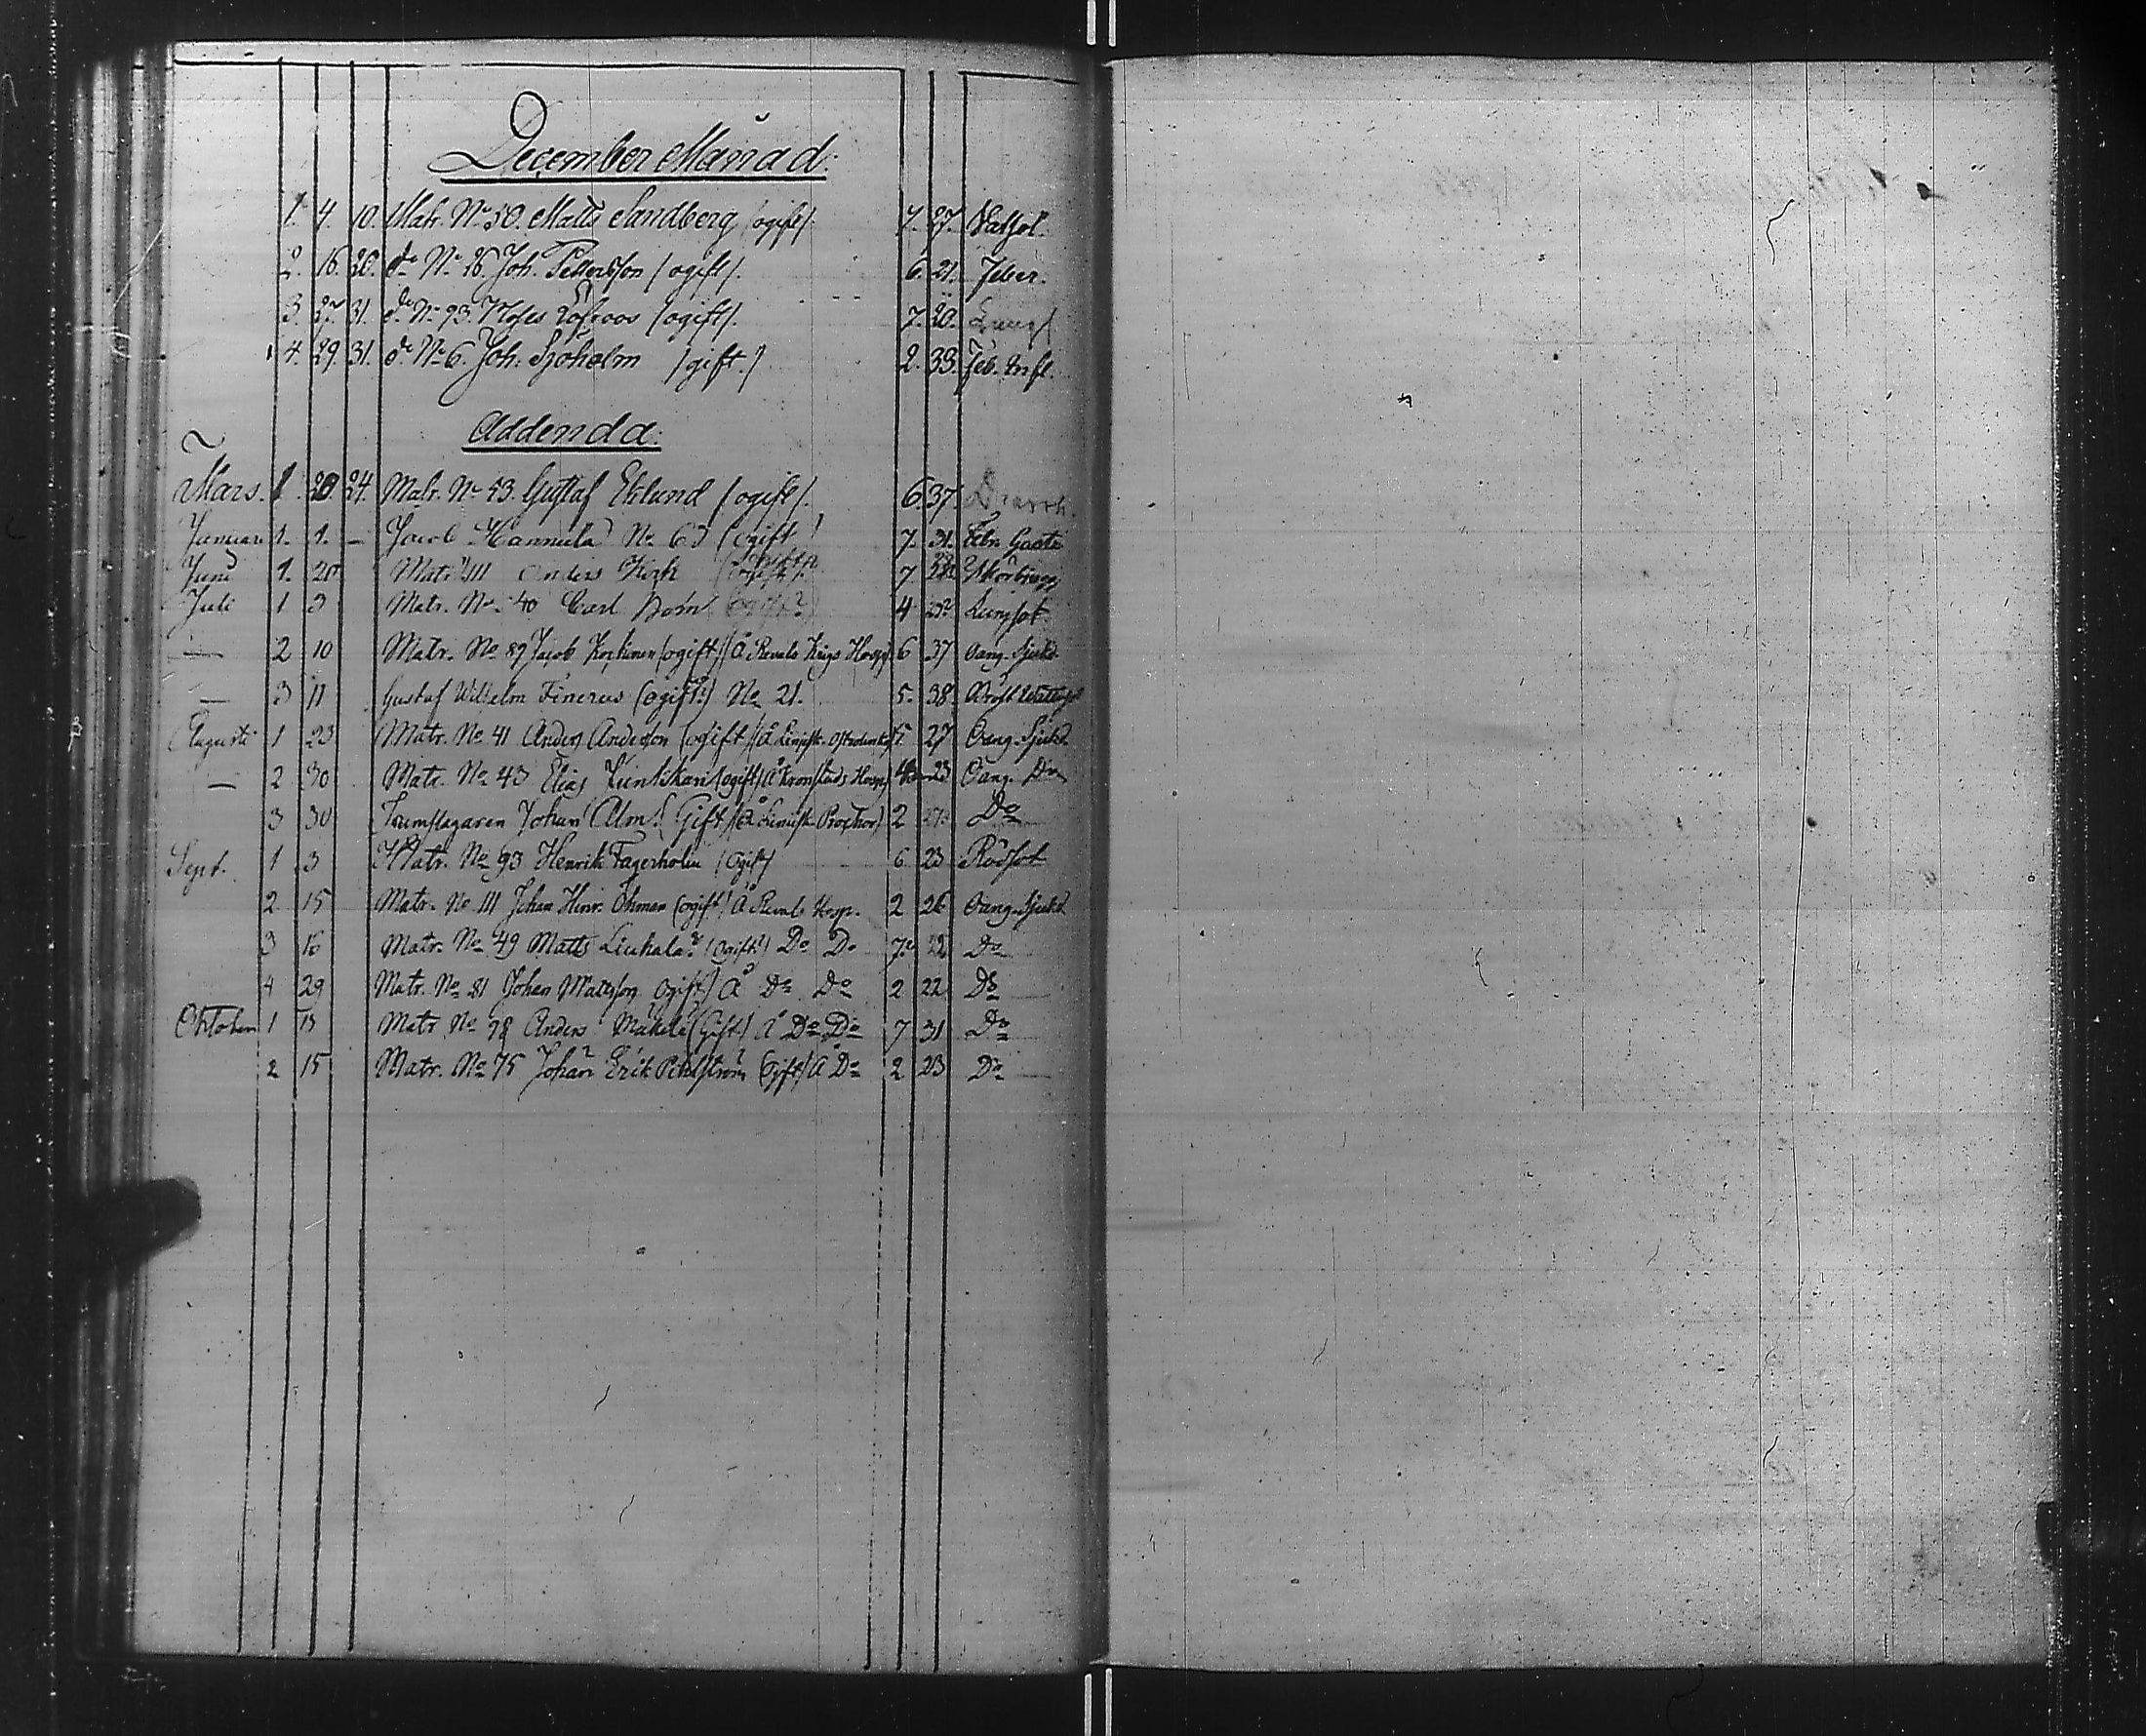 December Månad:
1. 4. 10. Matr. No 50. Matts Sandberg (ogift). 7. 27. Vatsot.
2. 16. 20. do No 26. Joh. Pettersson (ogift). 6. 21. Feber.
3. 27. 31. do No 93. Moses Löfroos (ogift). 7. 20. Lungs
4. 29. 31. do No 6. Joh. Sjöholm (gift.) 2. 33. Feb. Infl.
Addenda:
Mars. 1. 20 24. Matr. No 53. Gustaf Eklund (ogift). 6. 37.
Januari 1. 1. — Jacob Hannula No 63 (ogift) 7. 31. Febr.
Juni 1. 20 Matr. 111 Anders (ogift). 7 Skörbjugg
Juli 1 3 Matr. No 40 Carl 4 Lungsot
— 2 10 Matr. No 89 Jacob (ogift) (å Revals Krigs Hosp.) 6 37 Oang. Sjukd.
— 3 11 Gustaf Wilhelm Finerus (ogift) No 21. 5. 38.
Augusti 1 23 Matr. No 41 Anders Andersson (ogift) (å 5 27 Oang. Sjukd.
— 2 30 Matr. No 43 Elias (ogift) å Kronstads Hosp. 23 Oang. Do
3 30 Trumslagaren Johan Alm (Gift) 2 Do
Sept. 1 3 Matr. No 93 Henrik Fagerholm (Ogift) 6 23 Rödsot
2 15 Matr. No 111 Johan Hinr. Öhman (ogift) å Revals Hosp. 2 26 Oang. Sjukd
3 16 Matr. No 49 Matts Liukala (Ogift) Do Do 7 22 Do
4 29 Matr. No 81 Johan Mattsson Ogift) å Do Do 2 22 Do
Oktober 1 13 Matr No 98 Anders Mäkelä (Gift) å Do Do 7 31 Do
2 15 Matr. No 75 Johan Erik Pihlström (Gift) å Do 2 23 Do